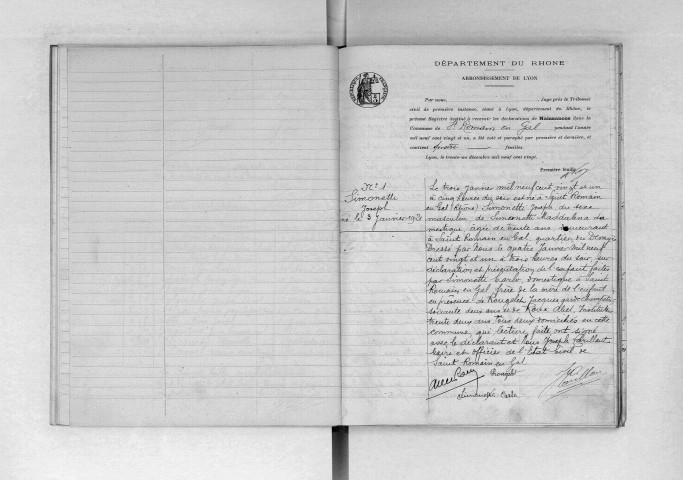 DÉPARTEMENT DU RHONE
ARRONDISSEMENT DE LYON
Par nous, Juge près le Tribunal
civil de première instance, séant à Lyon, département du Rhône, le
présent Registre destiné à recevoir les déclarations de Naissances dans la
Commune de St Romain en Gal pendant l'année
mil neuf cent vingt et un, a été coté et paraphé par première et dernière, et
contient quatre feuilles.
Lyon, le trente-un décembre mil neuf cent vingt.
Première feuille
N° 1
Simonette
Joseph
né le 3 Janvier 1921
Le trois Janvier mil neuf cent vingt et un
à cinq heures du soir est né à Saint Romain
en Gal (Rhône) Simonette Joseph du sexe
masculin de Simonette Maddalena do
mestique, âgée de trente ans demeurant
à Saint Romain en Gal quartier du
Dressé par nous le quatre Janvier mil neuf
cent vingt et un à trois heures du soir, sur
déclaration et présentation de l'enfant faites
par Simonette Carlo, domestique à Saint
Romain en Gal, frère de la mère de l'enfant
en présence de Jacques garde champêtre
soixante deux ans et de Roux Abel, Instituteur
trente deux ans tous deux domiciliés en cette
commune, qui lecture faite ont signé
avec le déclarant et Nous Joseph
Maire et officier de l'Etat Civil de
Saint Romain en Gal
Carlo